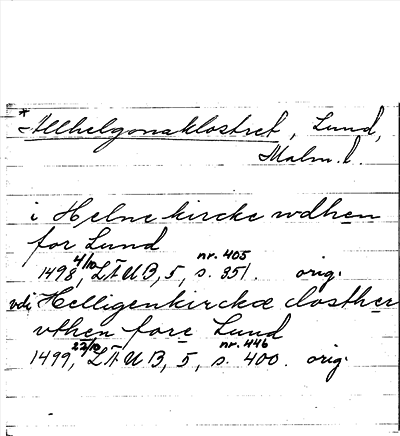 *
Allhelgonaklostret, Lund,
Malm. l.
i Helne kircke wdhen
for Lund
1498 4/10, LÄUB, 5, s. 351. nr. 405 orig.
vdi Helligenkirckæ closther
vthen fore Lund
1499, 22/10 LÄUB, 5, s. 400. nr. 446 orig.